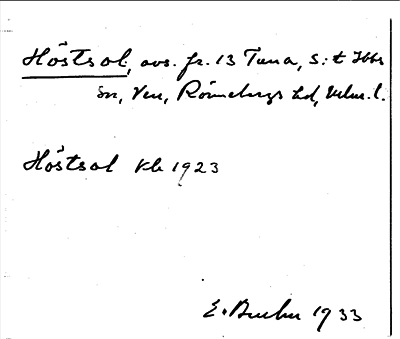 Höstsol, avs. fr. 13 Tuna, S:t Ibbs
sn, Ven, Rönnebergs hd, Mlm. l.
Höstsol Kb 1923
E. Bucht 1933